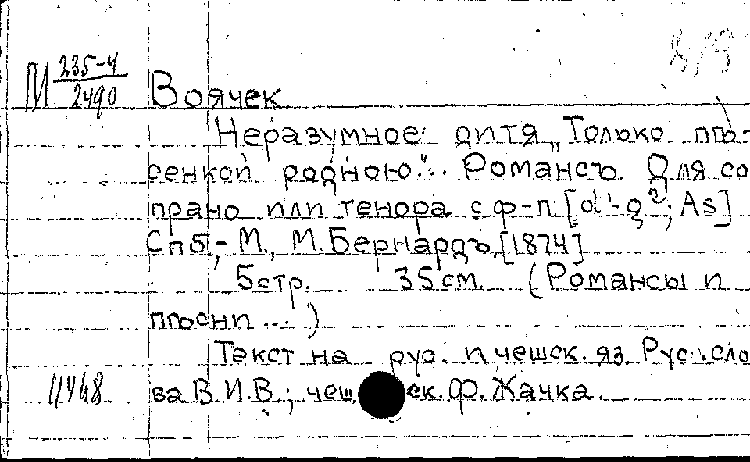 М 235-4/2490 Воячек
Неразумное дитя „Только пѣ-
сенкой родною“... Романсъ. Для со
прано или тенора с ф-п. [d¹-g²; As]
Спб.- М., М. Бернардъ, [1874]
5 стр. 35 см. (Романсы и
пѣсни ... )
Текст на рус. и чешск. яз. Рус. сло
11468 ва В.И.В.; чеш ск. Ф. Жачка.